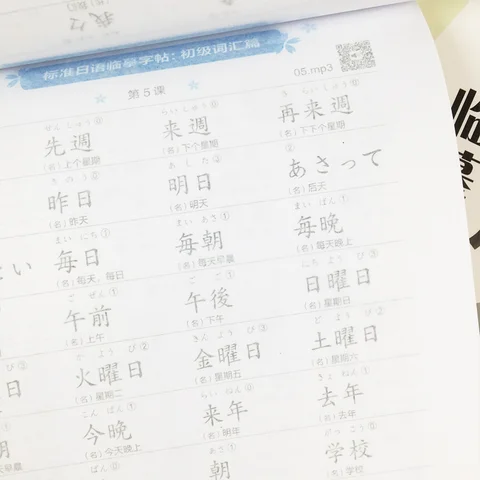 标准日语临摹字帖：初级词汇篇
05.mp3
第5课
せんしゅう らいしゅう さらいしゅう
先週 来週 再来週
（名）上个星期 （名）下个星期 （名）下下个星期
きのう あした
昨日 明日 あさって
（名）昨天 （名）明天 （名）后天
まいにち まいあさ まいばん
毎日 毎朝 毎晩
（名）每天，每日 （名）每天早晨 （名）每天晚上
ごぜん ごご にちようび
午前 午後 日曜日
（名）上午 （名）下午 （名）星期日
かようび きんようび どようび
火曜日 金曜日 土曜日
（名）星期二 （名）星期五 （名）星期六
こんばん らいねん きょねん
今晩 来年 去年
（名）今天晚上 （名）明年 （名）去年
あさ がっこう
朝 学校
（名）学校
临摹